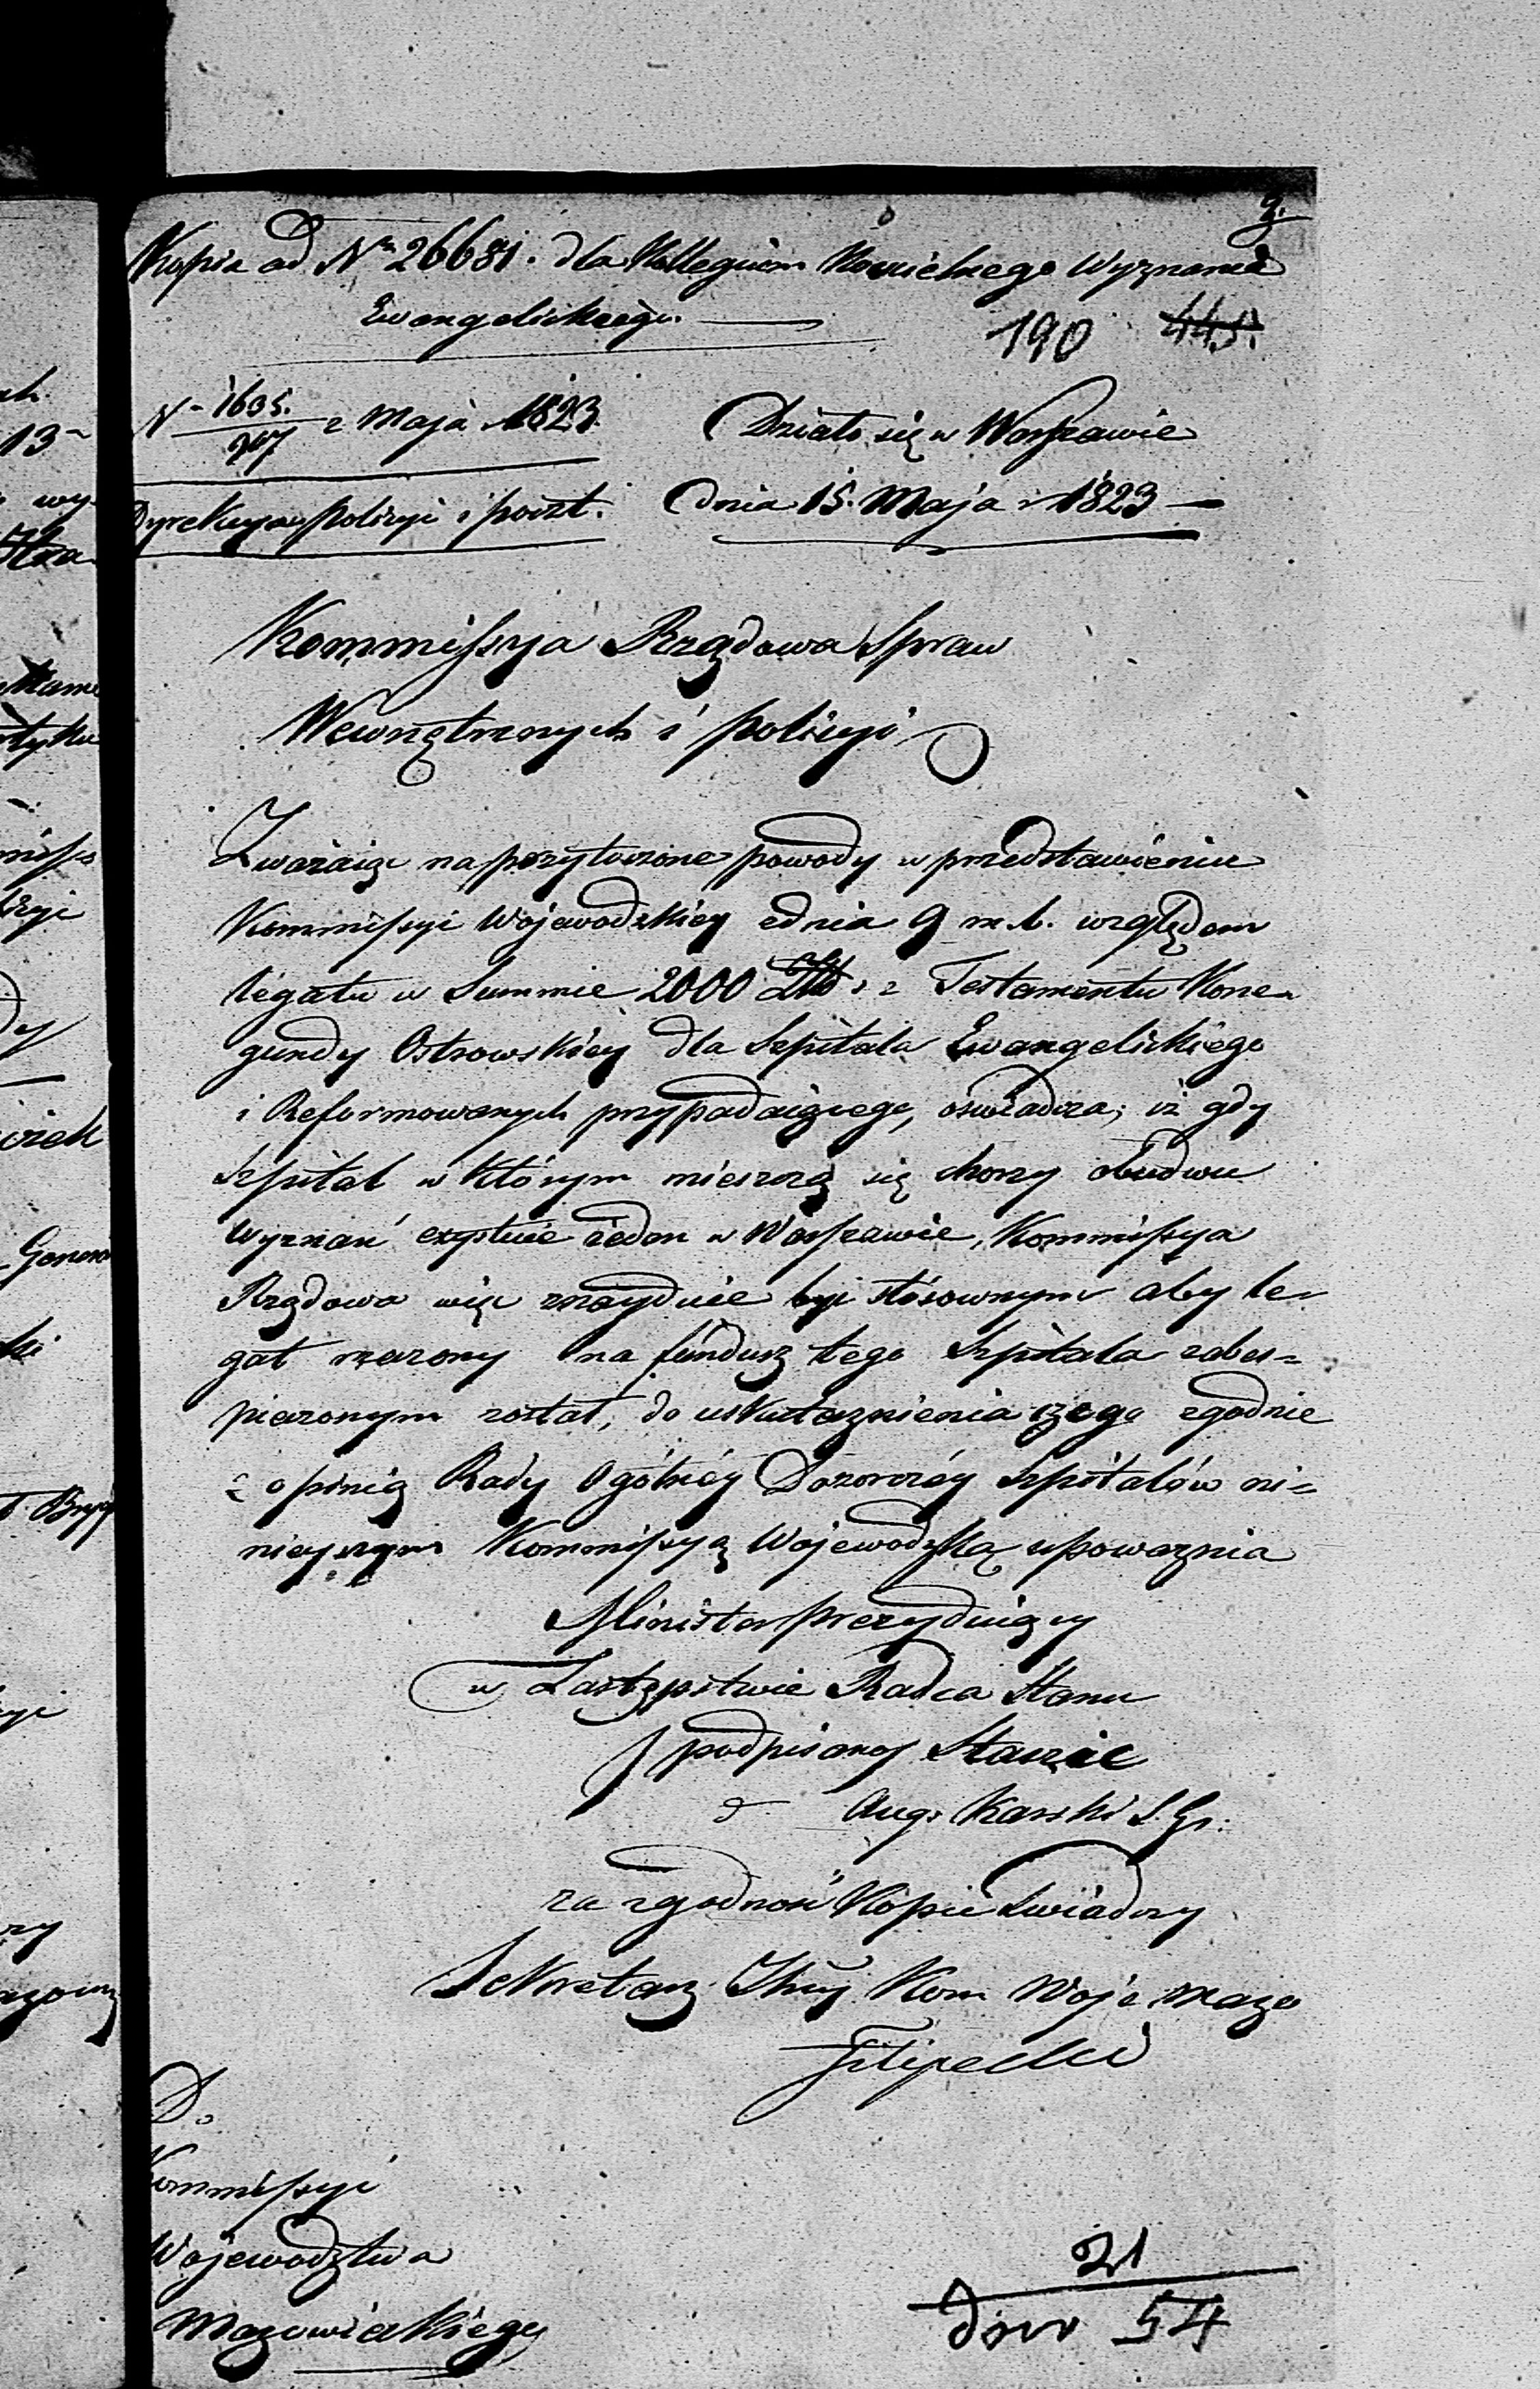 9.
Kopia ad Nr 26681. dla Kollegium Kościelnego Wyznania
Ewangelickiego.
190 445.
N. 1635. / 747 z Maja 1823.
Działo się w Warszawie
Dyrekcya Policyi i poczt.
dnia 15. Maja r 1823
Kommissya Rządowa Spraw
Wewnętrznych i Policyi
Zważaiąc na przytoczone powody w przedstawieniu
Kommissyi Wojewodzkiey z dnia 9 m. b. względem
legatu w Summie 2000 Złb. z Testamentu Kone-
gundy Ostrowskiey dla Szpitala Ewangelickiego
i Reformowanych przypadaiącego, oświadcza; iż gdy
Szpital w którym mieszczą się chorzy obudwu
wyznań exystuie ieden w Warszawie, Kommissya
Rządowa więc znayduie być stósownym aby le-
gat rzeczony na fundusz tego Szpitala zabes-
pieczonym został, do uskutecznienia czego zgodnie
z opinią Rady Ogólnéy Dozorczéy Szpitalów ni-
nieyszym Kommissyą Wojewodzką upoważnia
Minister Prezyduiący
w Zastępstwie Radca Stanu
podpisany Staszic
Aug. Karski S. Gr.
za zgodność Kopii Świadczy
Sekretarz Jlny Kom Woje Mazo
Filipecki
Do
Kommissyi
Wojewodztwa
Mazowieckiego
21
dow 54